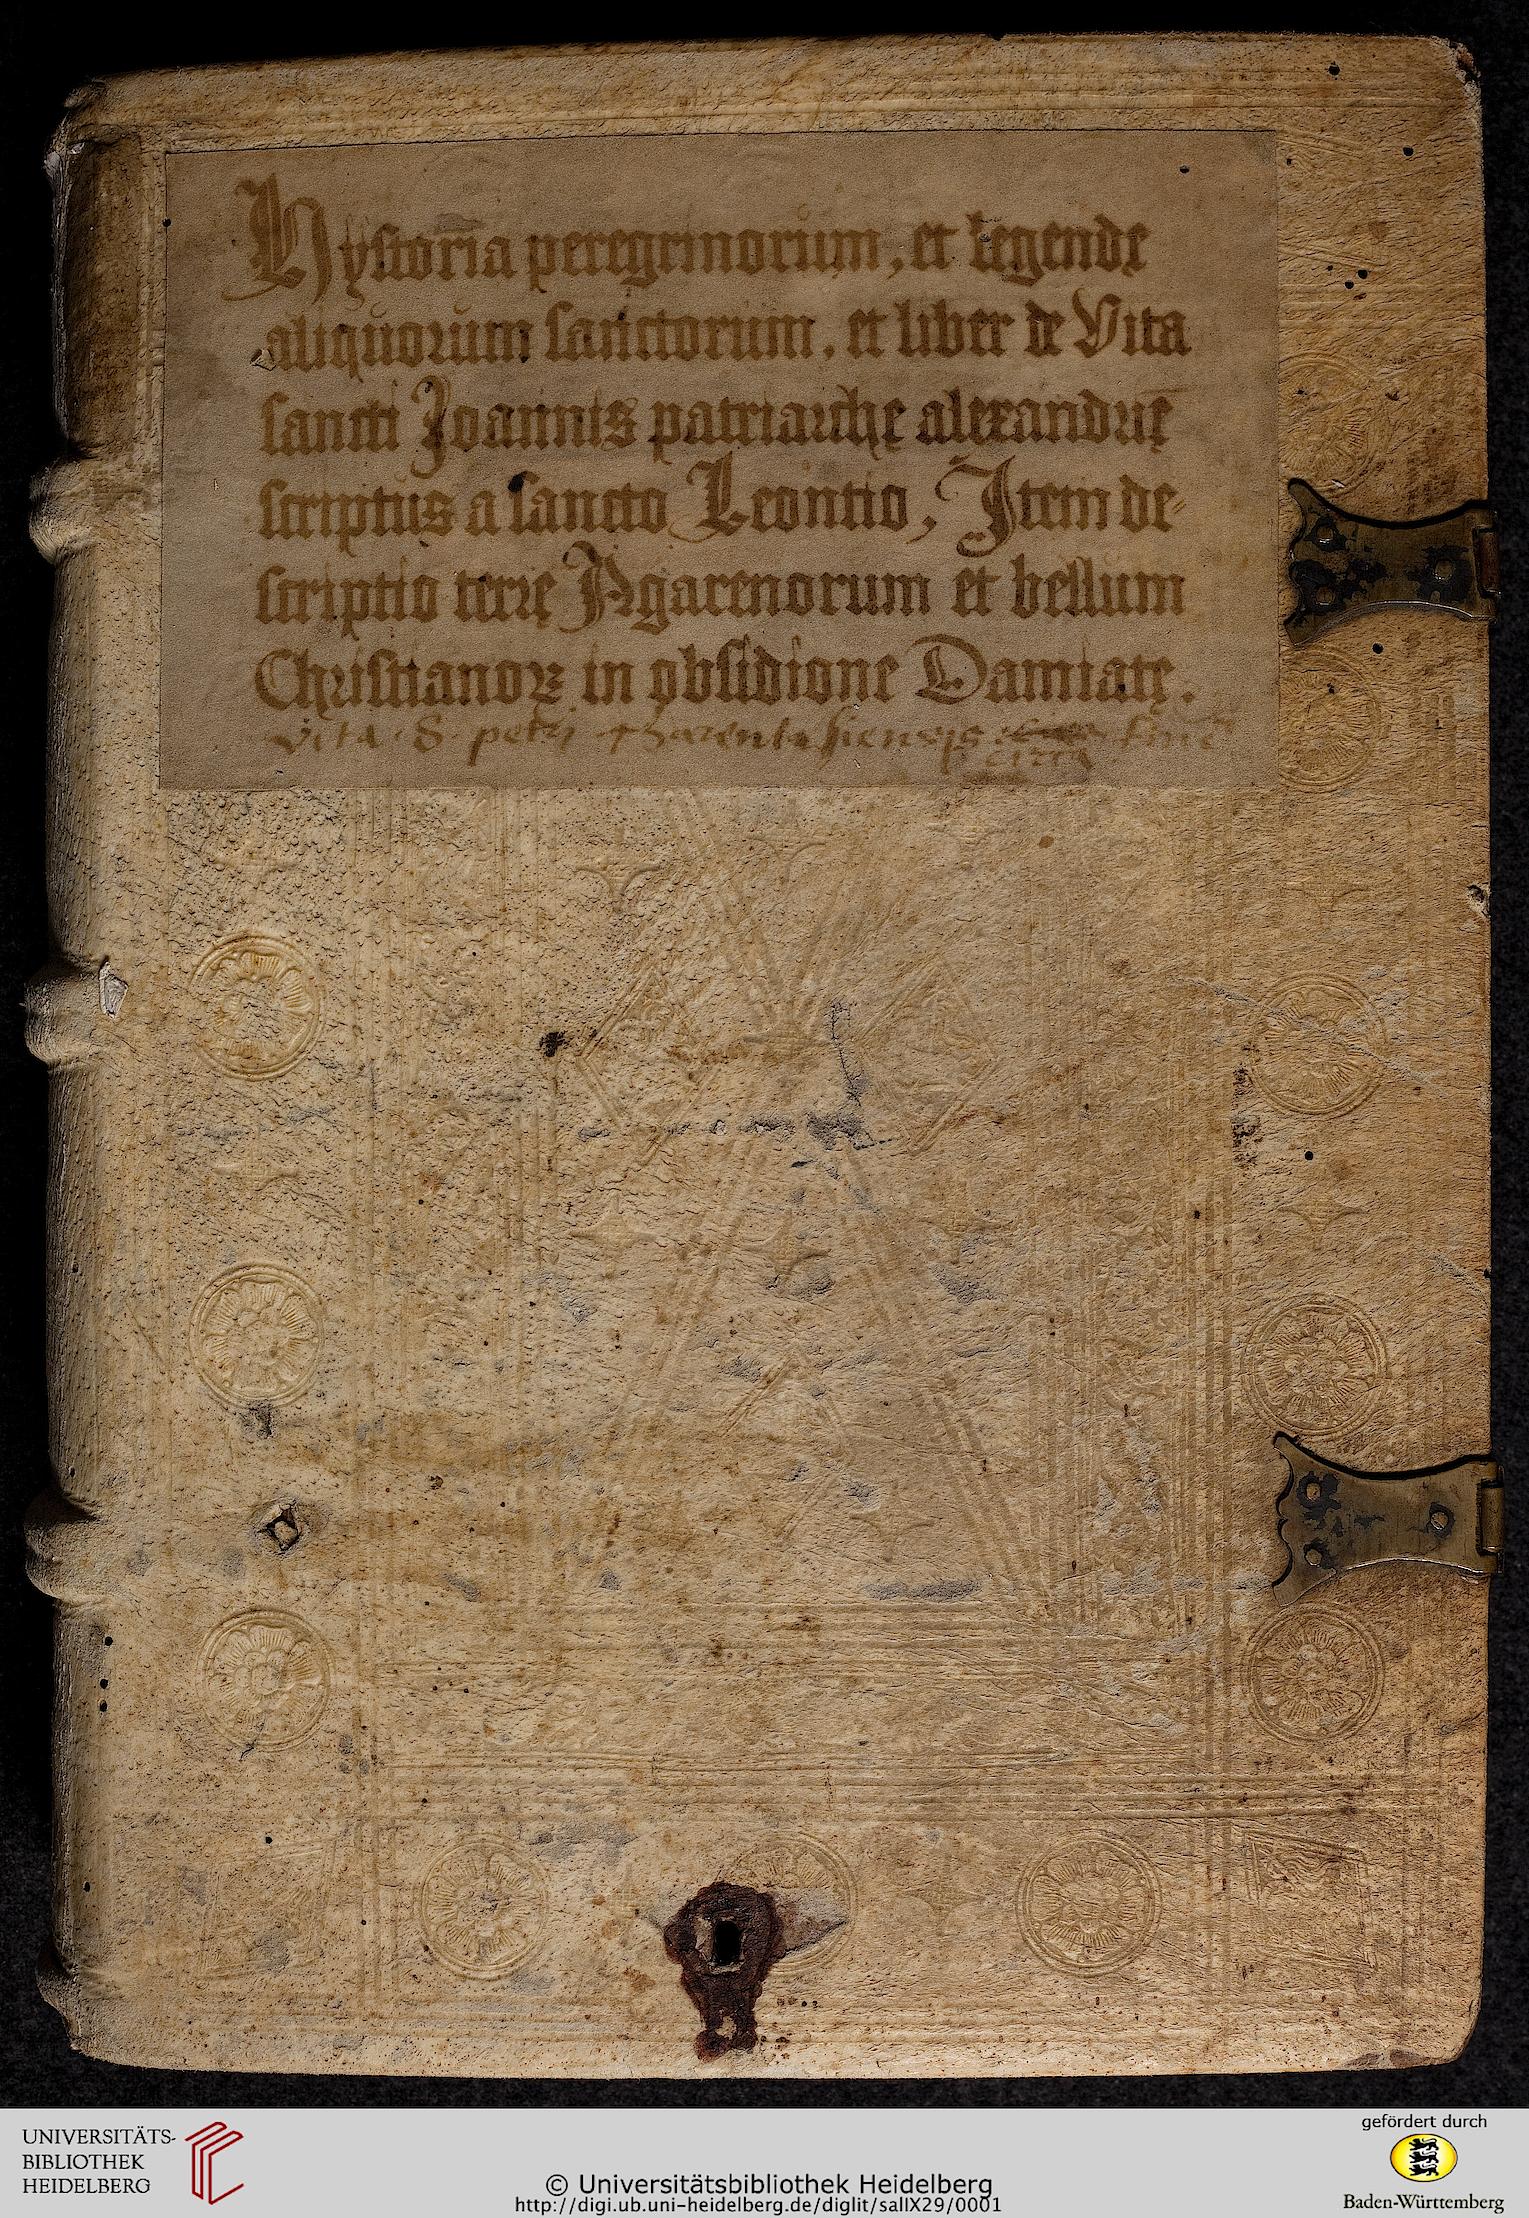 Hystoria peregrinorum, et legende
aliquorum sanctorum, et liber de Vita
sancti Joannis patriarche alexandrię
scriptus a sancto Leontio, Item de-
scriptio terrę Agarenorum et bellum
Christianoꝝ in obsidione Damiatę.
Vita S. petri
UNIVERSITÄTS-
BIBLIOTHEK
HEIDELBERG
© Universitätsbibliothek Heidelberg
http://digi.ub.uni-heidelberg.de/diglit/salIX29/0001
gefördert durch
Baden-Württemberg